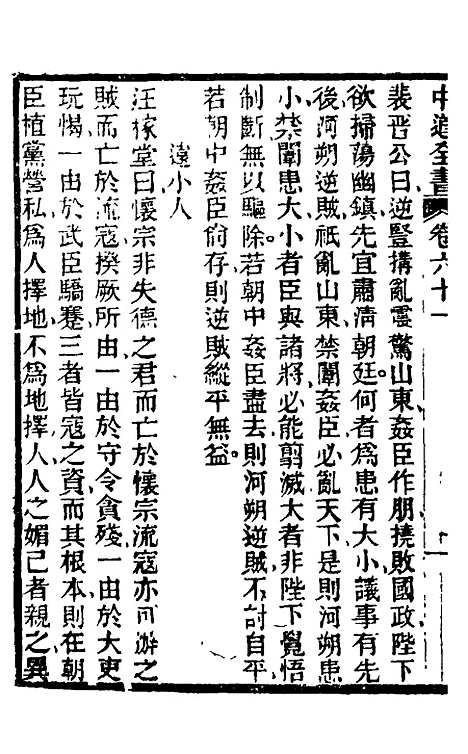 中道全書　卷六十一
裴晉公曰逆豎搆亂震驚山東姦臣作朋撓敗國政陛下
欲掃蕩幽鎮先宜肅淸朝廷何者爲患有大小議事有先
後河朔逆賊祇亂山東禁闈姦臣必亂天下是則河朔患
小禁闈患大小者臣與諸將必能翦滅大者非陛下覺悟
制斷無以驅除若朝中姦臣盡去則河朔逆賊不討自平
若朝中姦臣尙存則逆賊縱平無益
遠小人
汪稼堂曰懷宗非失德之君而亡於懷宗流寇亦可游之
賊而亡於流寇揆厥所由一由於守令貪殘一由於大吏
玩愒一由於武臣驕蹇三者皆寇之資而其根本則在朝
臣植黨營私爲人擇地不爲地擇人人之媚己者親之異